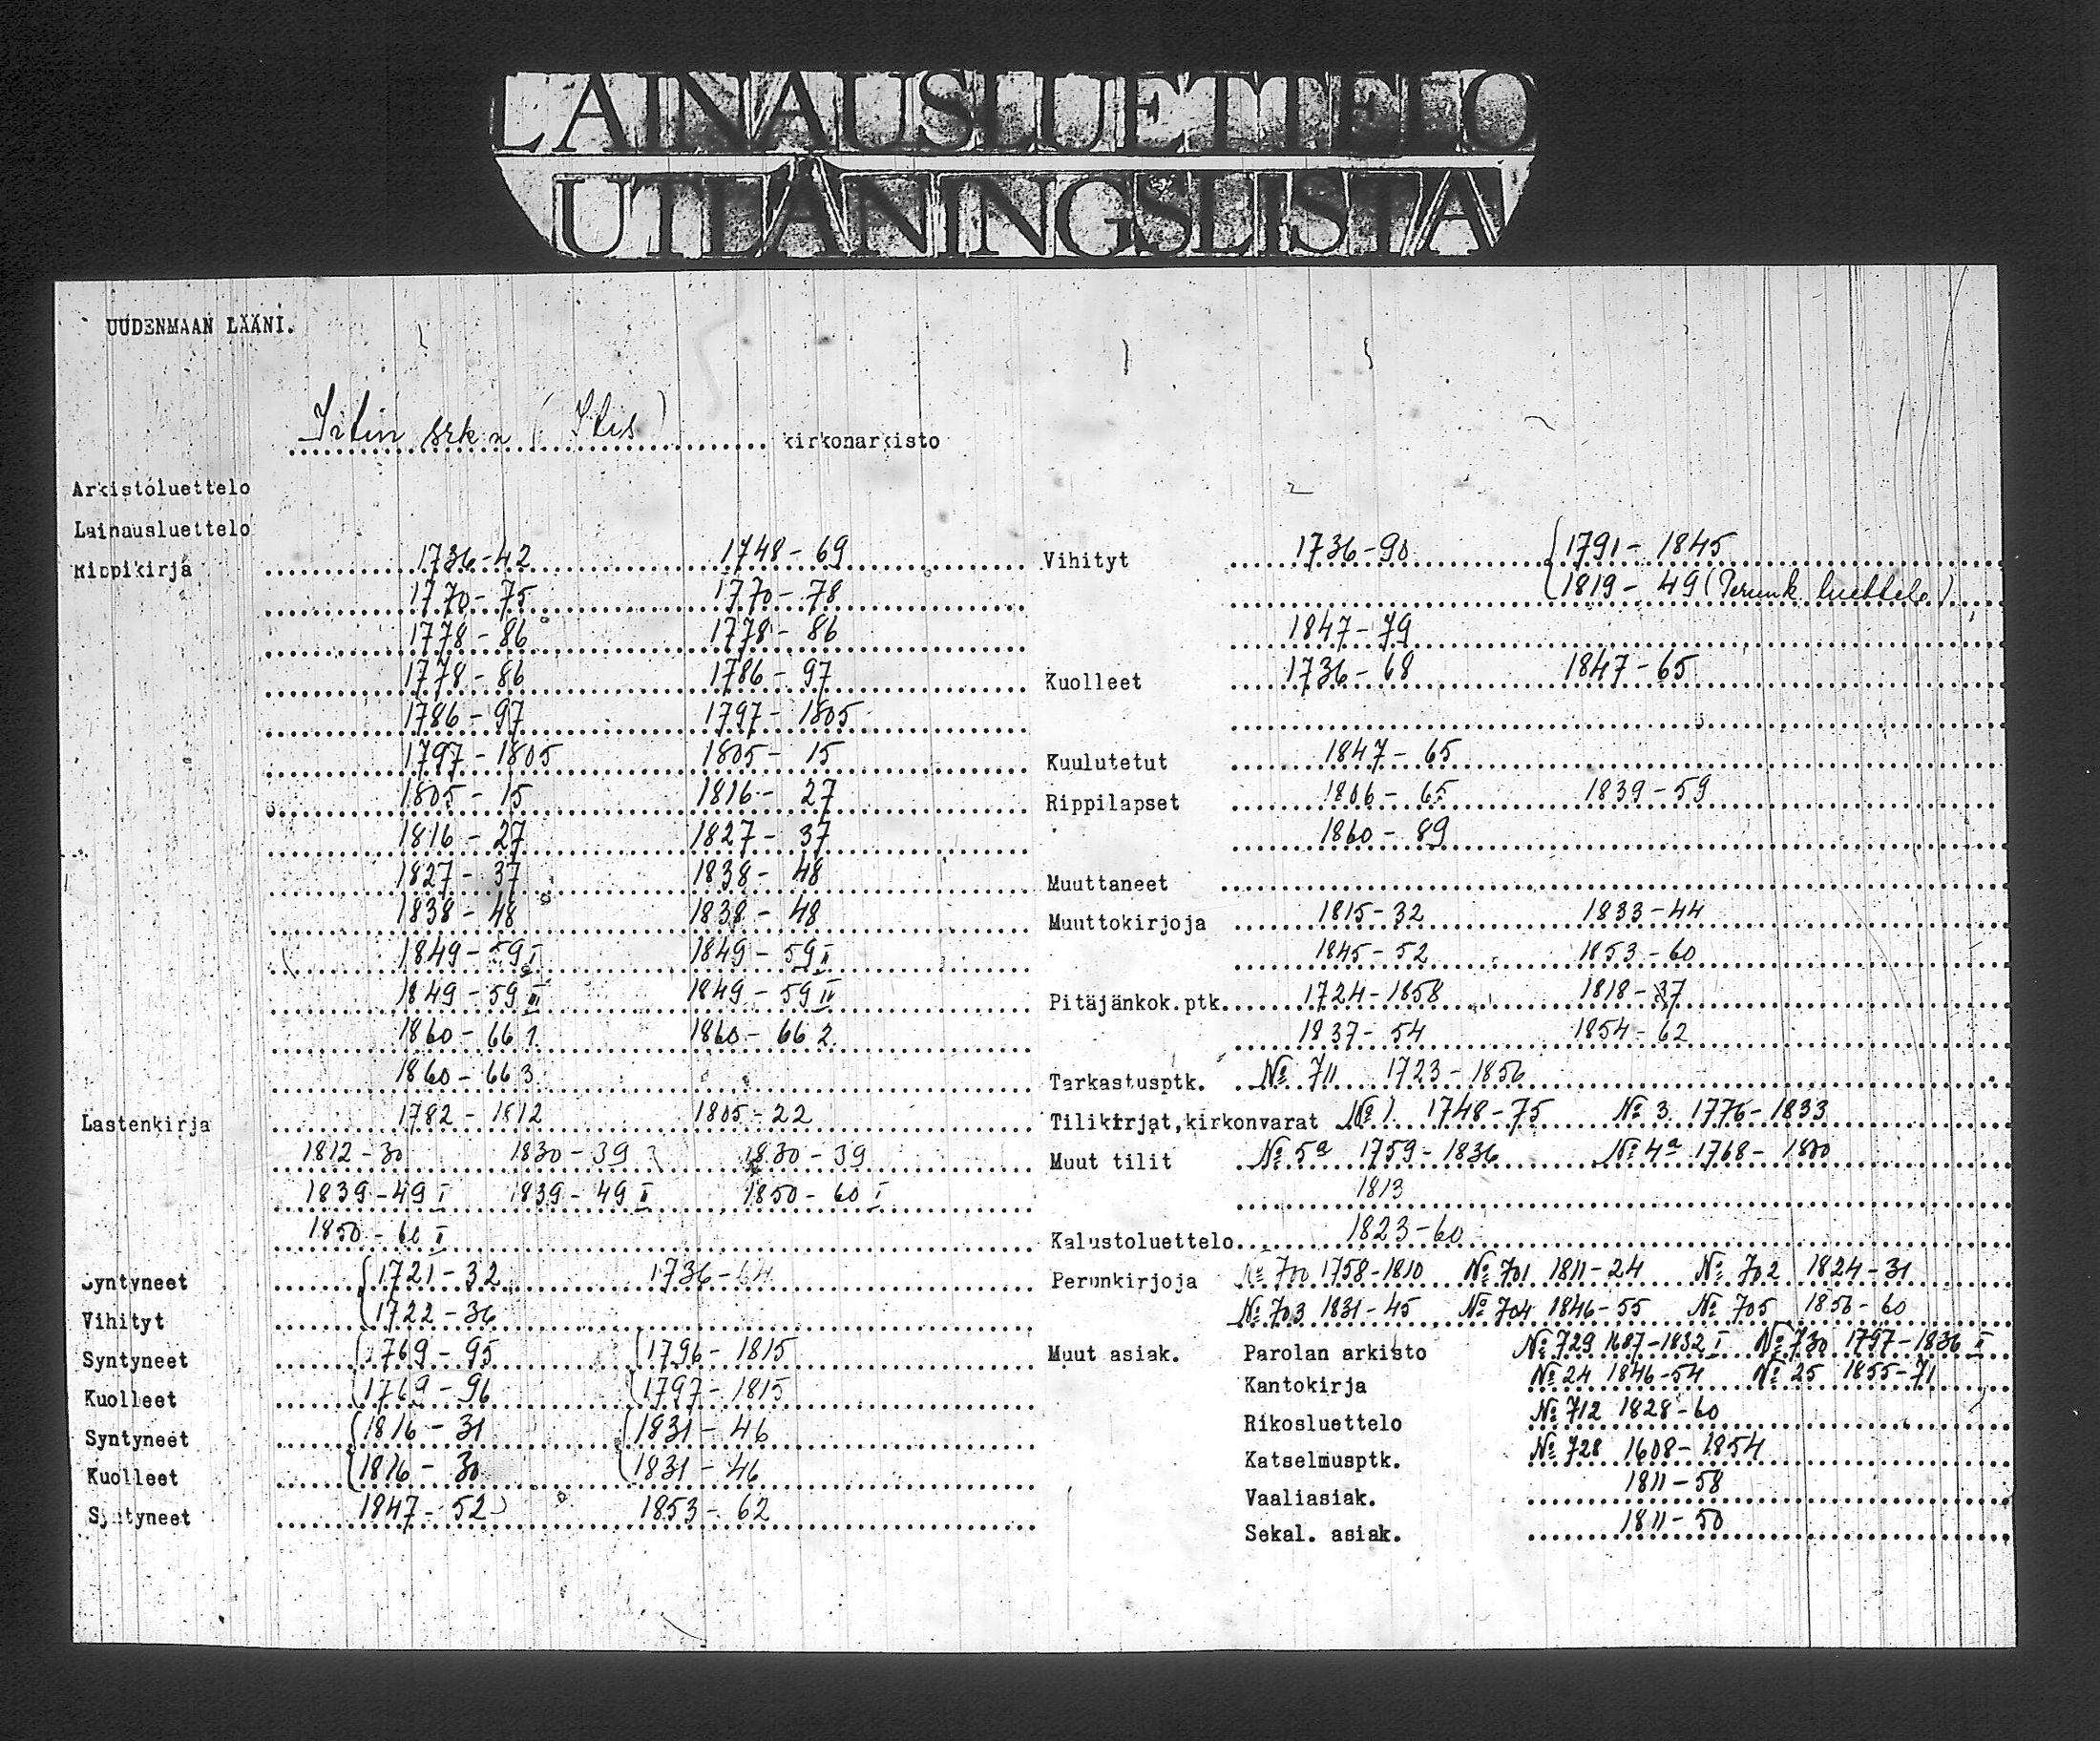 LAINAUSLUETTELO
UTLÅNINGSLISTA
UUDENMAAN LÄÄNI.
Iitin srk:n (Itis) kirkonarkisto
Arkistoluettelo
Lainausluettelo
Rippikirja 1736-42 1748-69
1770-75 1770-78
1778-86 1778-86
1778-86 1786-97
1786-97 1797-1805
1797-1805 1805-15
1805-15 1816-27
1816-27 1827-37
1827-37 1838-48
1838-48 1838-48
1849-59 I 1849-59 II
1849-59 III 1849-59 IV
1860-66 1. 1860-66 2.
1860-66 3.
Lastenkirja 1782-1812 1805-22
1812-30 1830-39 1830-39
1839-49 I 1839-49 II 1850-60 I
1850-60 II
Syntyneet 1721-32 1736-
Vihityt 1722-36
Syntyneet 1769-95 1796-1815
Kuolleet 1769-96 1797-1815
Syntyneet 1816-31 1831-46
Kuolleet 1816-30 1831-46
Syntyneet 1847-52 1853-62
Vihityt 1736-90 1791-1845
1819-49 (Perunk. luettelo)
1847-79
Kuolleet 1736-68 1847-65
Kuulutetut 1847-65
Rippilapset 1806-65 1839-59
1860-89
Muuttaneet
Muuttokirjoja 1815-32 1833-44
1845-52 1853-60
Pitäjänkok.ptk. 1724-1858 1818-37
1837-54 1854-62
Tarkastusptk. № 711 1723-1856
Tilikirjat,kirkonvarat № 1. 1748-75 № 3. 1776-1833
Muut tilit № 5a 1759-1836 № 4a 1768-
1813
Kalustoluettelo 1823-60
Perunkirjoja № 700 1758-1810 № 701 1811-24 № 702 1824-31
№ 703 1831-45 № 704 1846-55 № 705 1856-60
Muut asiak. Parolan arkisto № 729 1687-1832 I № 730 1797-1836 II
Kantokirja № 24 1846-54 № 25 1855-71
Rikosluettelo № 712 1828-60
Katselmusptk. № 728 1608-1854
Vaaliasiak. 1811-58
Sekal. asiak. 1811-50